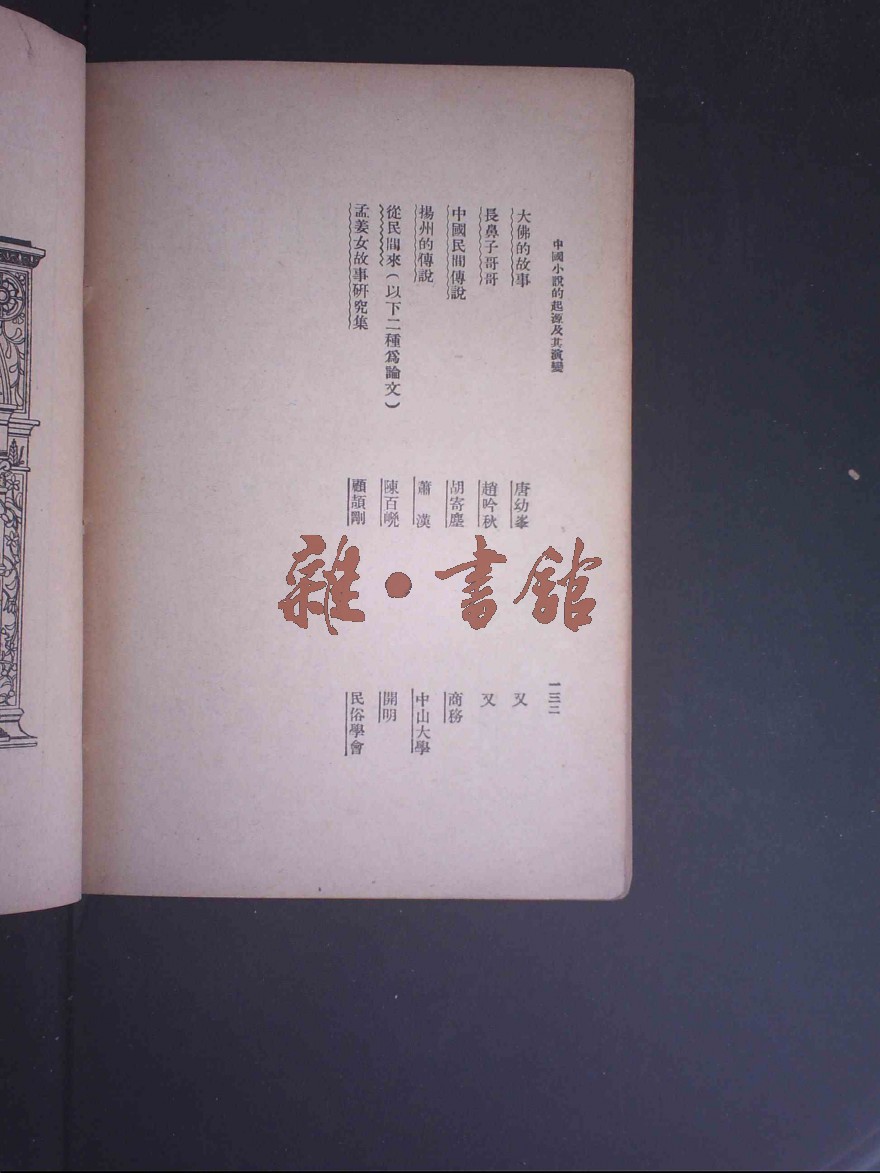 中國小說的起源及其演變
一三二
大佛的故事 唐幼峯 又
長鼻子哥哥 趙吟秋 又
中國民間傳說 胡寄塵 商務
揚州的傳說 蕭漢 中山大學
從民間來(以下二種爲論文) 陳百嘵 開明
孟姜女故事研究集 顧頡剛 民俗學會
雜·書館